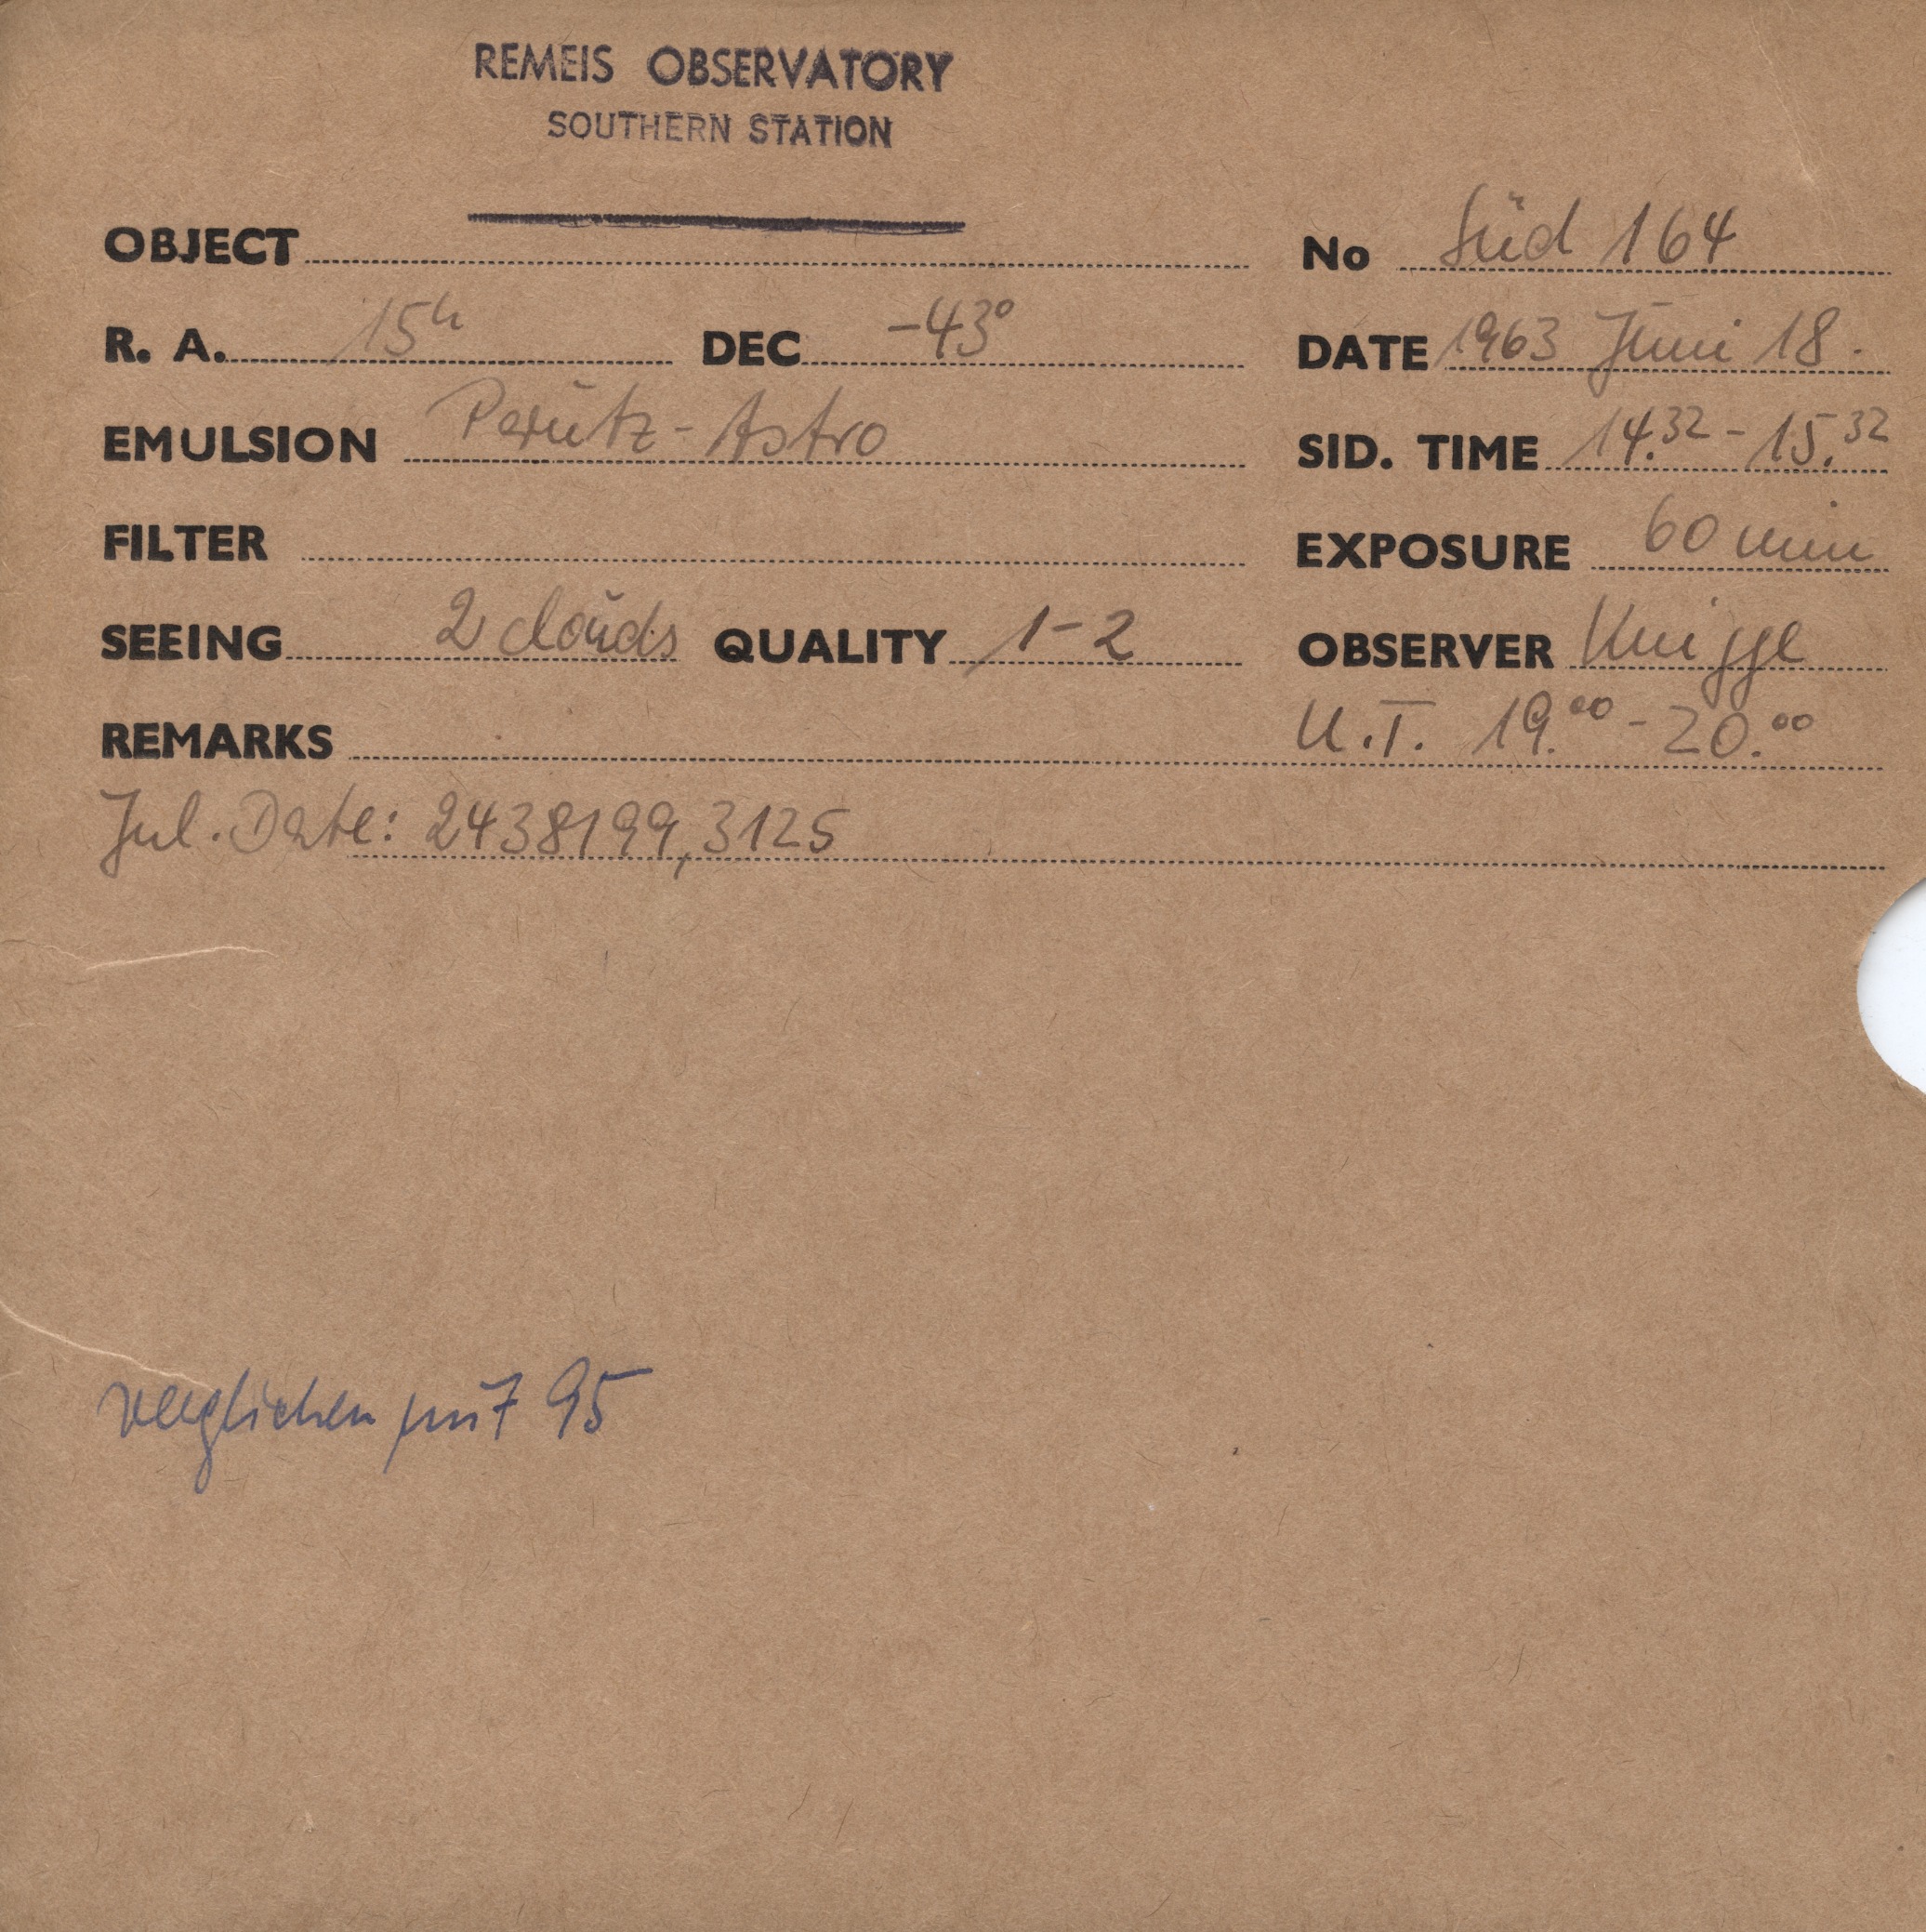 REMEIS OBSERVATORY
SOUTHERN STATION
OBJECT No Süd 164
R. A. 15h DEC -43° DATE 1963 Juni 18.
EMULSION Perutz-Astro SID. TIME 14.32 - 15.32
FILTER EXPOSURE 60 min
SEEING 2 clouds QUALITY 1-2 OBSERVER Knigge
REMARKS U.T. 19.00 - 20.00
Jul. Date: 2438199,3125
verglichen mit 95